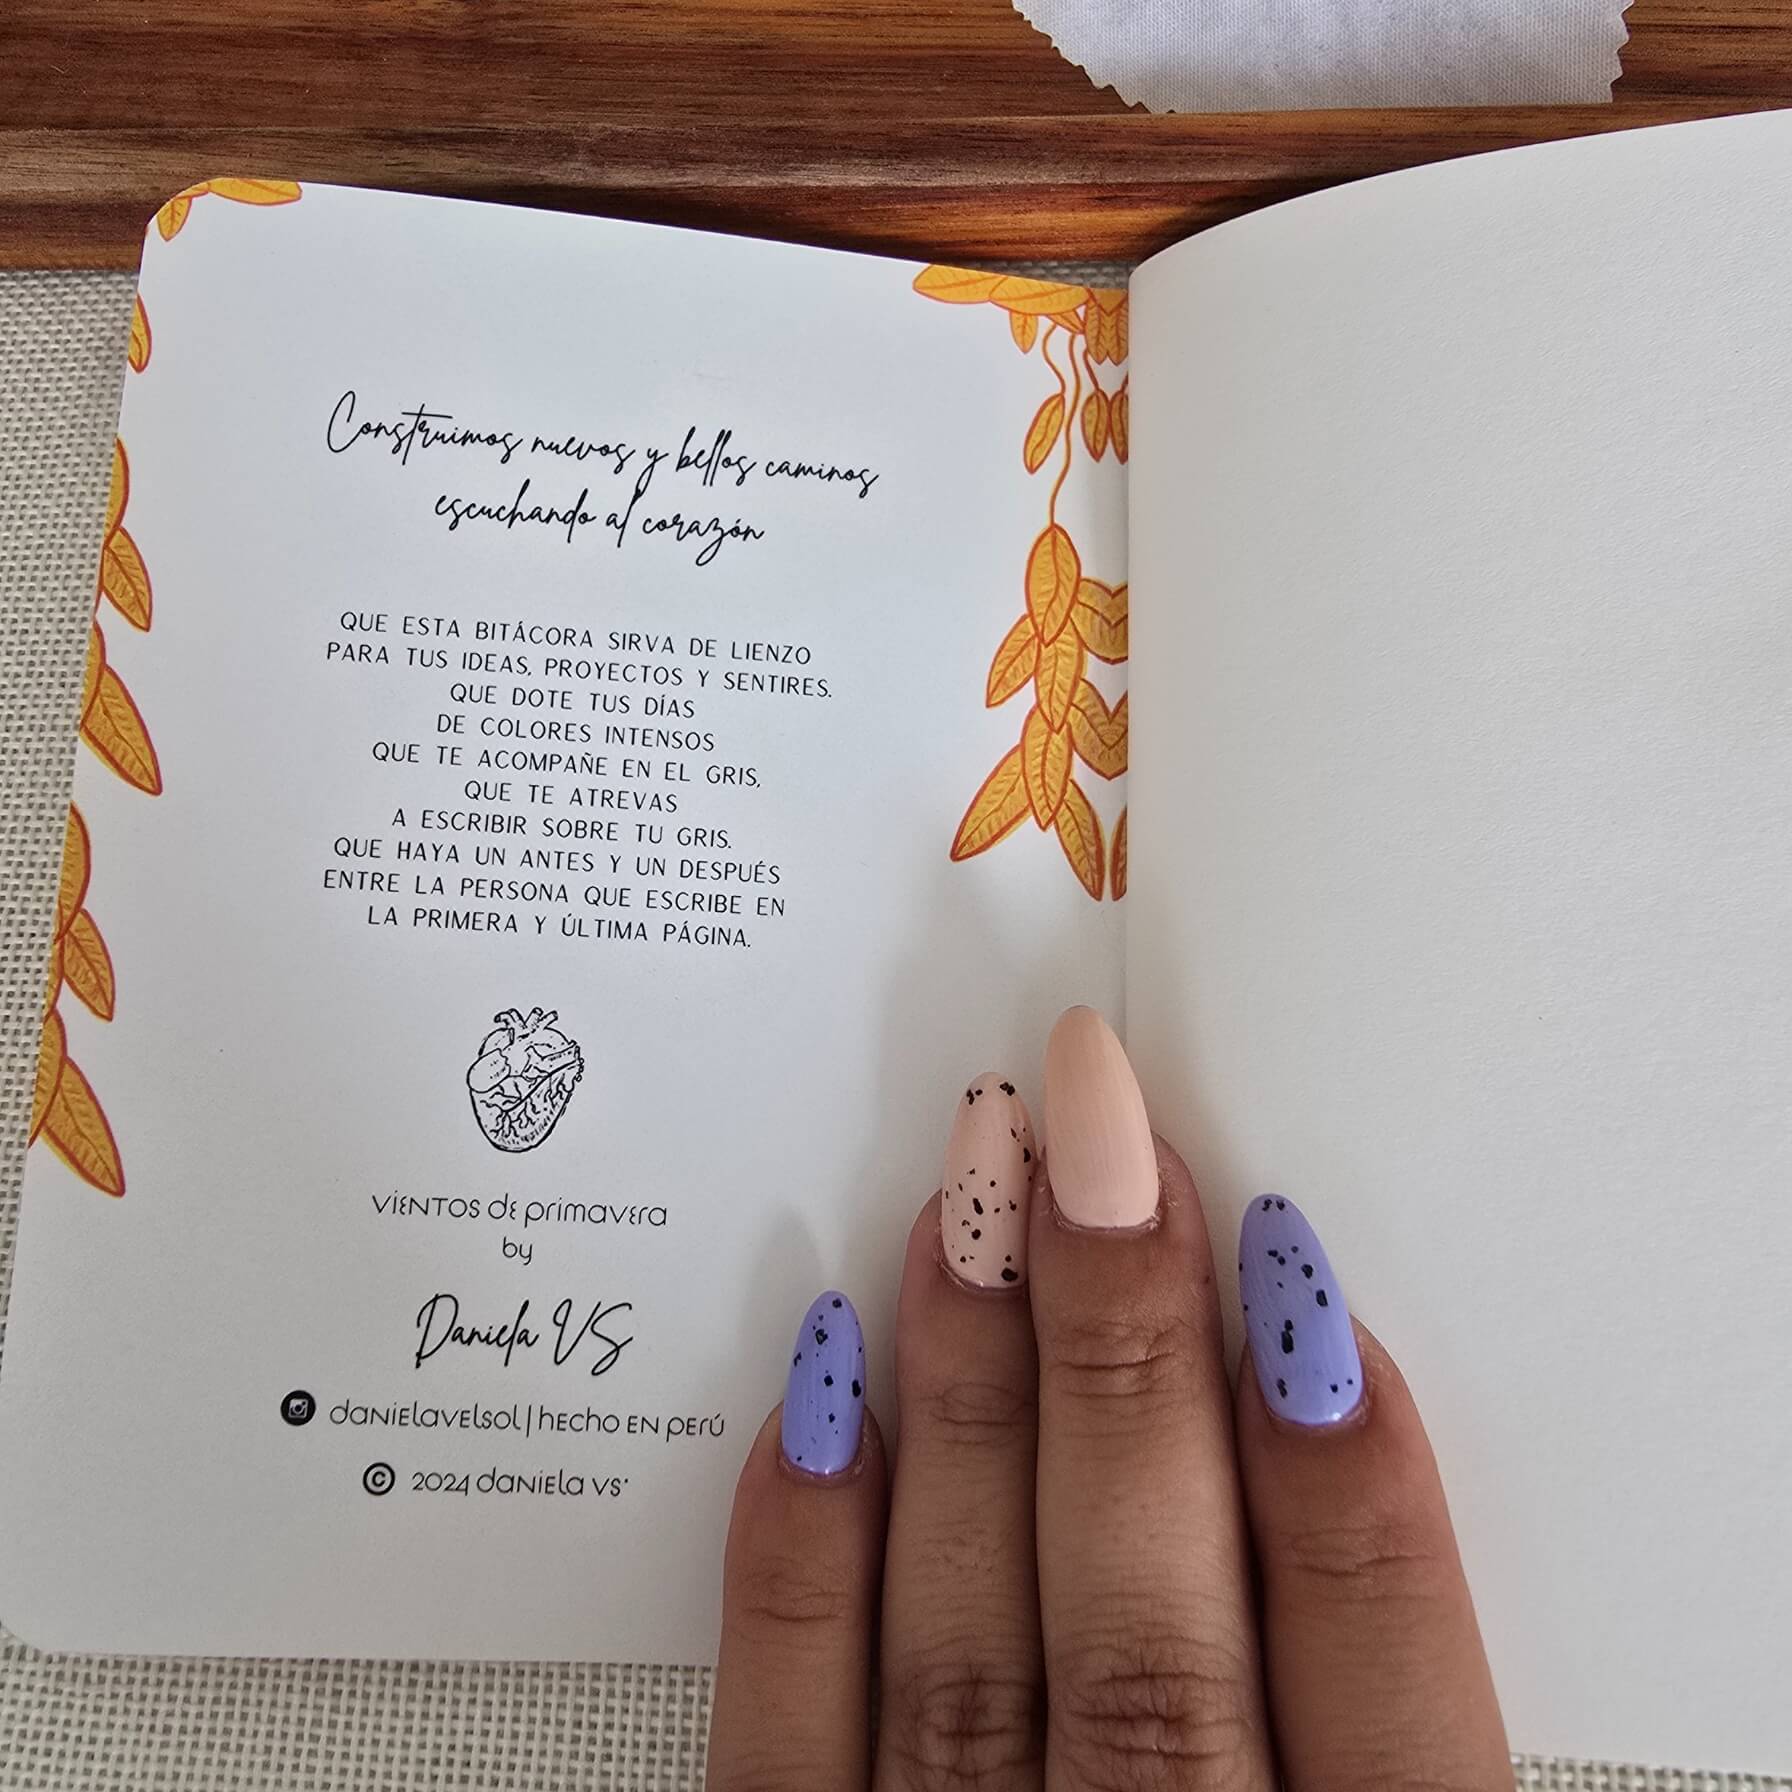 Construimos nuevos y bellos caminos
escuchando al corazón
QUE ESTA BITÁCORA SIRVA DE LIENZO
PARA TUS IDEAS, PROYECTOS Y SENTIRES.
QUE DOTE TUS DÍAS
DE COLORES INTENSOS
QUE TE ACOMPAÑE EN EL GRIS,
QUE TE ATREVAS
A ESCRIBIR SOBRE TU GRIS.
QUE HAYA UN ANTES Y UN DESPUÉS
ENTRE LA PERSONA QUE ESCRIBE EN
LA PRIMERA Y ÚLTIMA PÁGINA.
VIENTOS DE PRIMAVERA
by
Daniela VS
DANIELAVELSOL | HECHO EN PERÚ
© 2024 DANIELA VS·